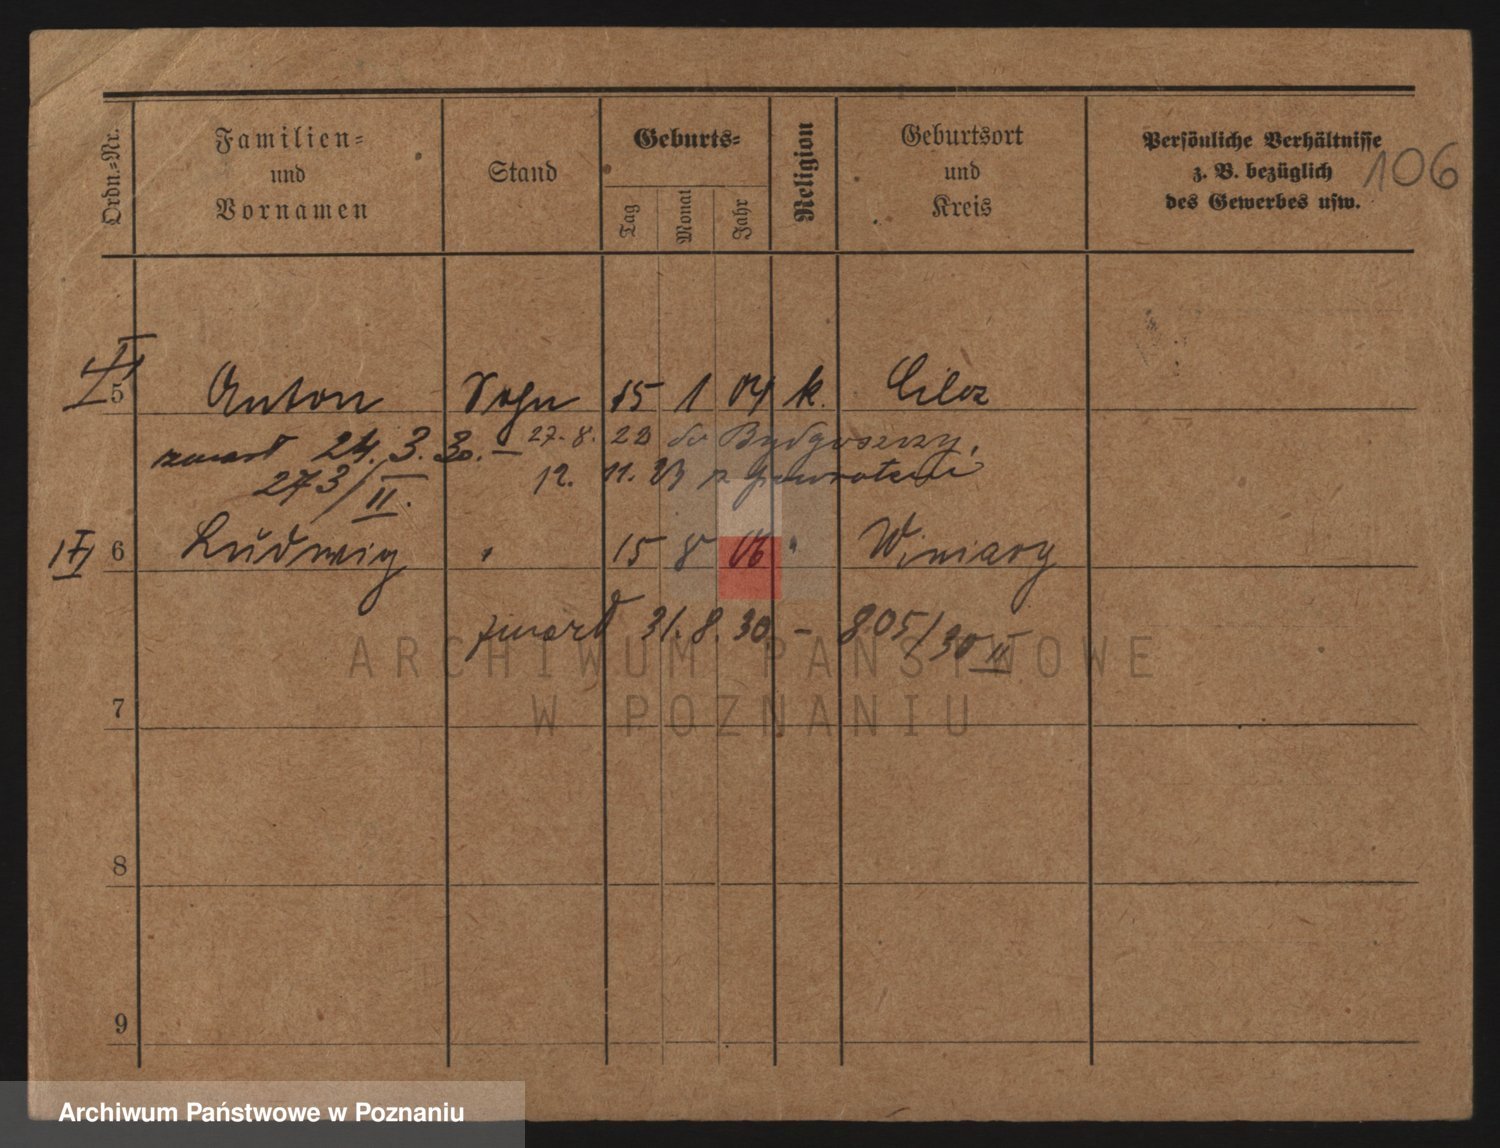 Ordn.=Nr.
Familien=
und
Vornamen
Stand
Geburts=
Tag
Monat
Jahr
Religion
Geburtsort
und
Kreis
Persönliche Verhältnisse
z. B. bezüglich
des Gewerbes usw.
106
5 Anton Sohn 15 1 04 k.
zmarł 24. 3. 30. – 27. 8. 23 do Bydgoszczy.
273/II. 12. 11. 23 z powrotem
6 Ludwig " 15 8 06 " Winiary
zmarł 31. 8. 30. – 805/30 II
7
8
9
ARCHIWUM PAŃSTWOWE
W POZNANIU
Archiwum Państwowe w Poznaniu